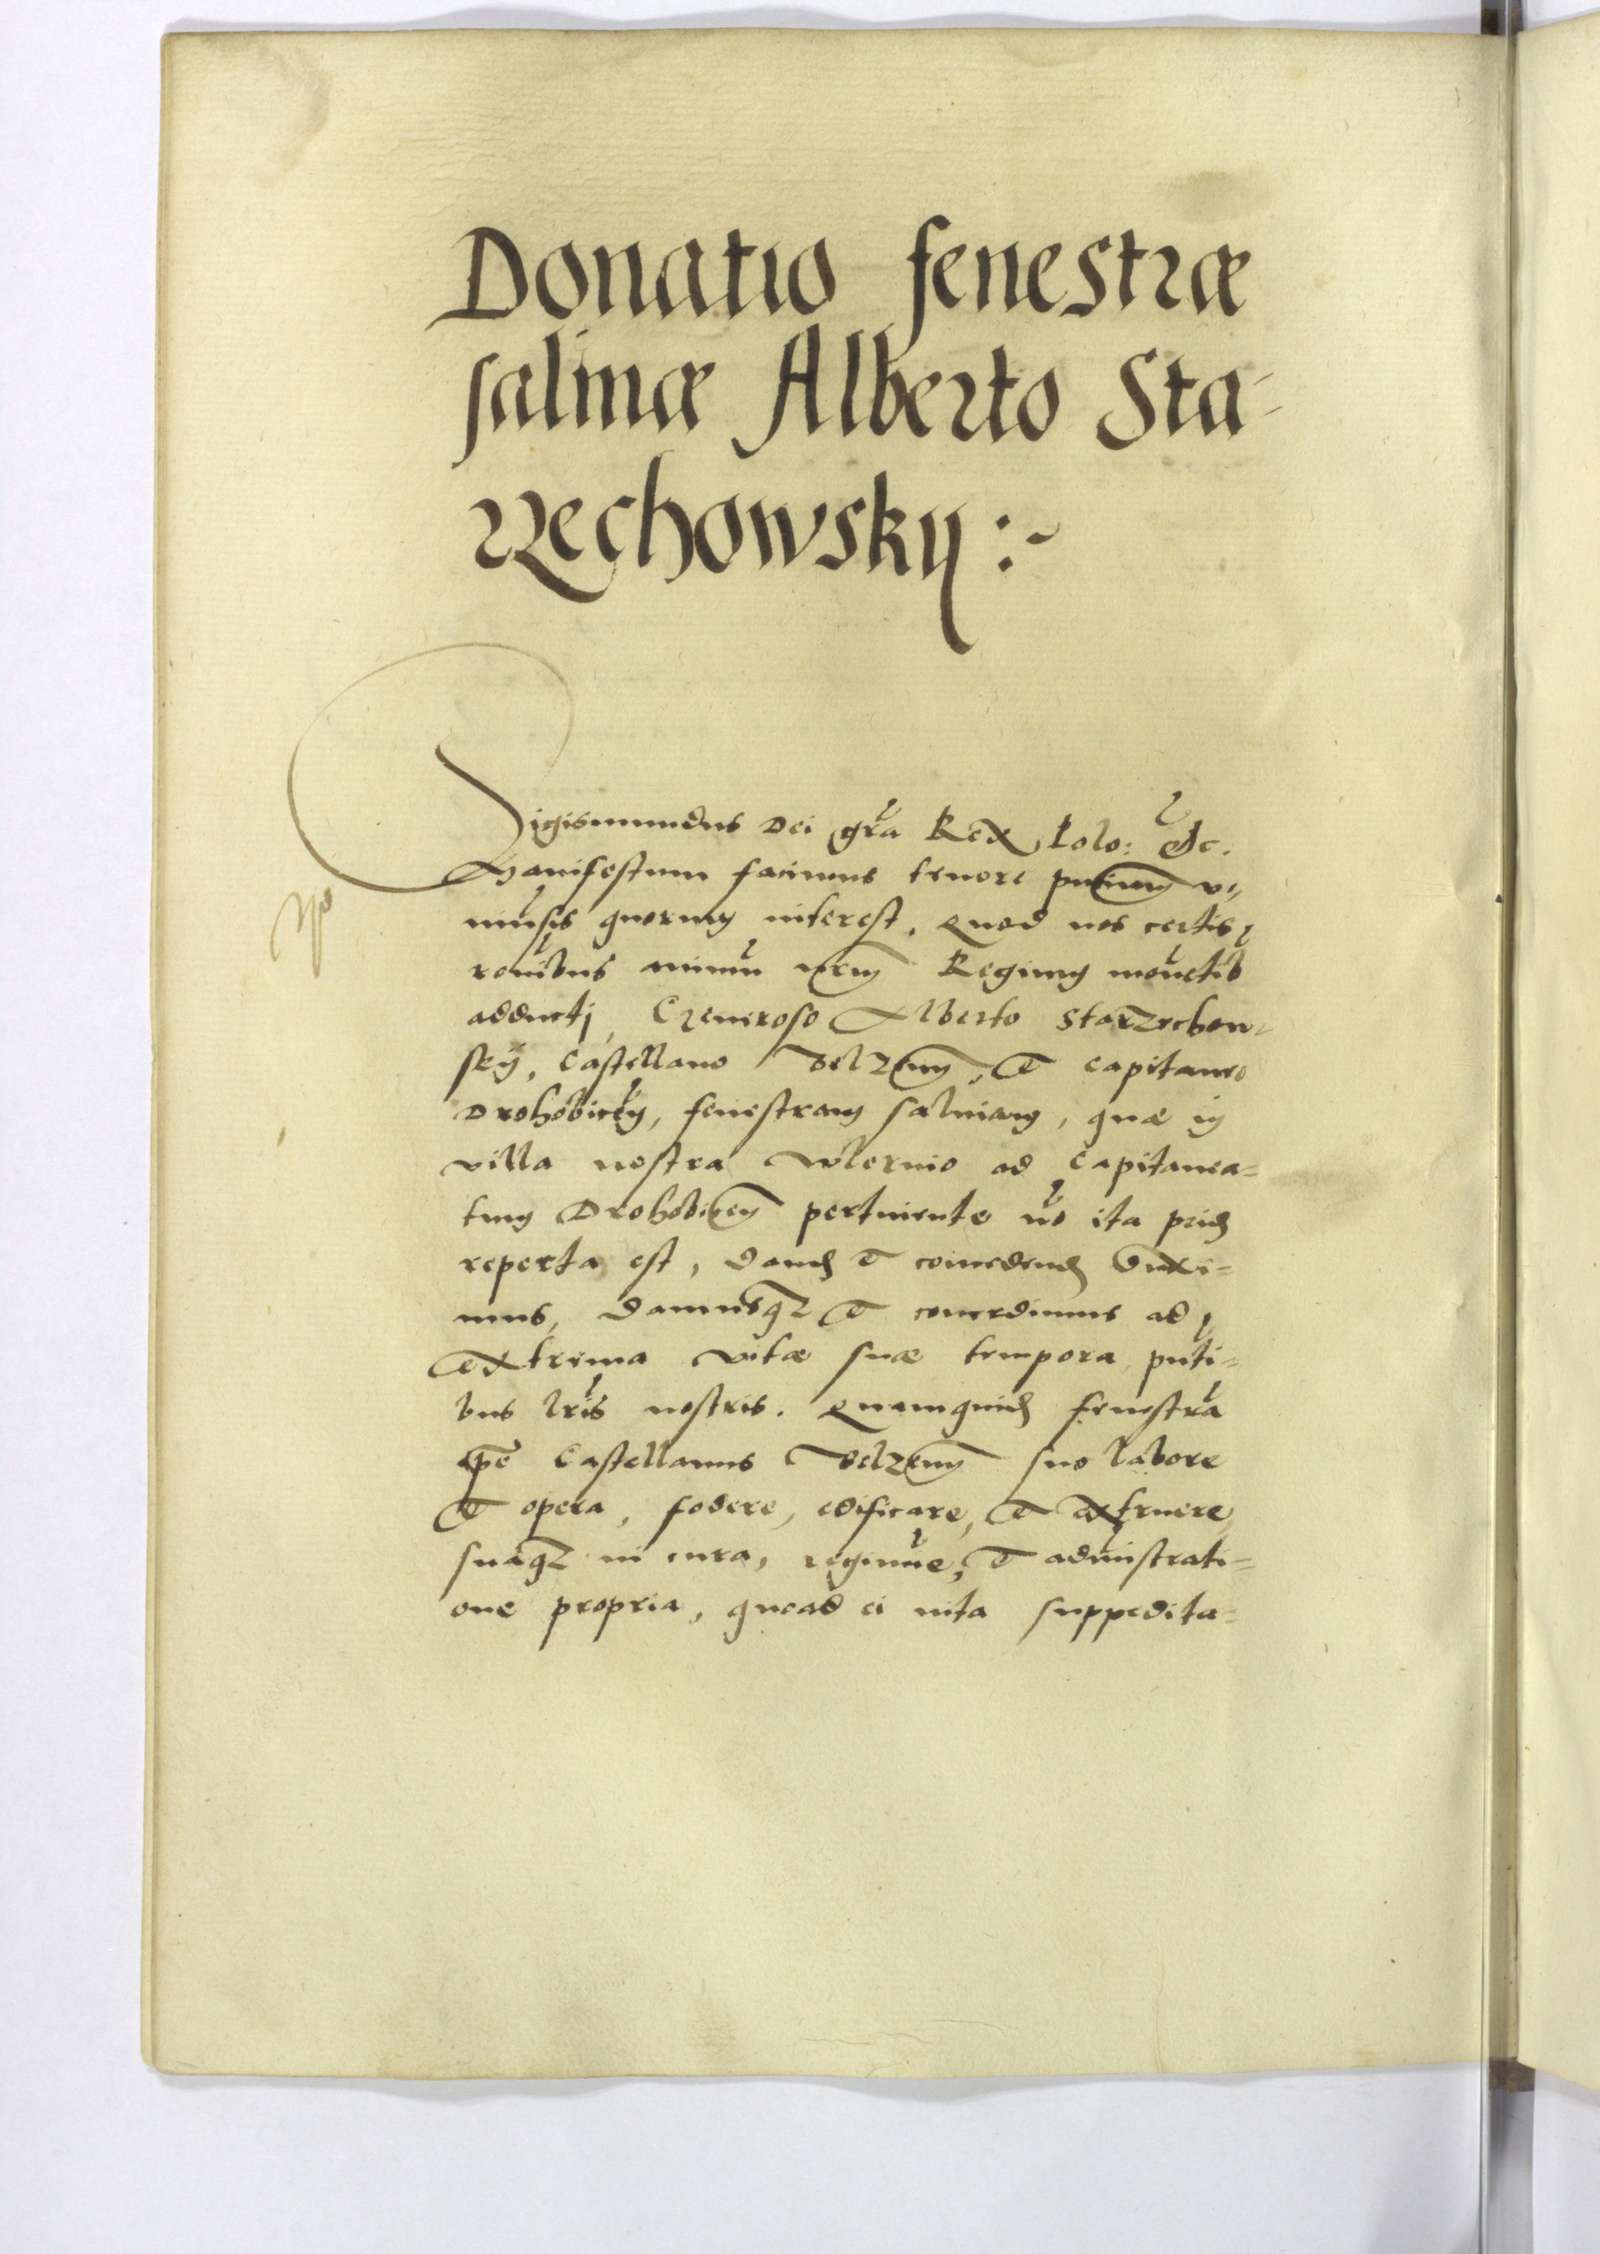 Donatio fenestræ
salinæ Alberto Sta-
rzechowsky :~
Sigismundus Dei gra Rex Polo: etc.
Manifestum facimus tenore pntium v-
niusis quorum interest. Quod nos certis
ronibus animu nrum Regium mouetib
adducti, Generoso Alberto Starzechow-
sky, Castellano Belzen, et Capitaneo
Drohobicen, fenestram salinam, quæ in
villa nostra Wlernio ad Capitanea-
tum Drohobicen pertinente no ita prid
reperta est, dand et concedend duxi-
mus, damusqz et concedimus ad
extrema vitæ suæ tempora pnti-
bus lris nostris. Quamquid fenestra
ipse Castellanus Belzen suo labore
et opera, fodere, edificare, et extruere,
suaqz in cura, regimine, et administrati-
one propria, quoad ei uita suppedita-